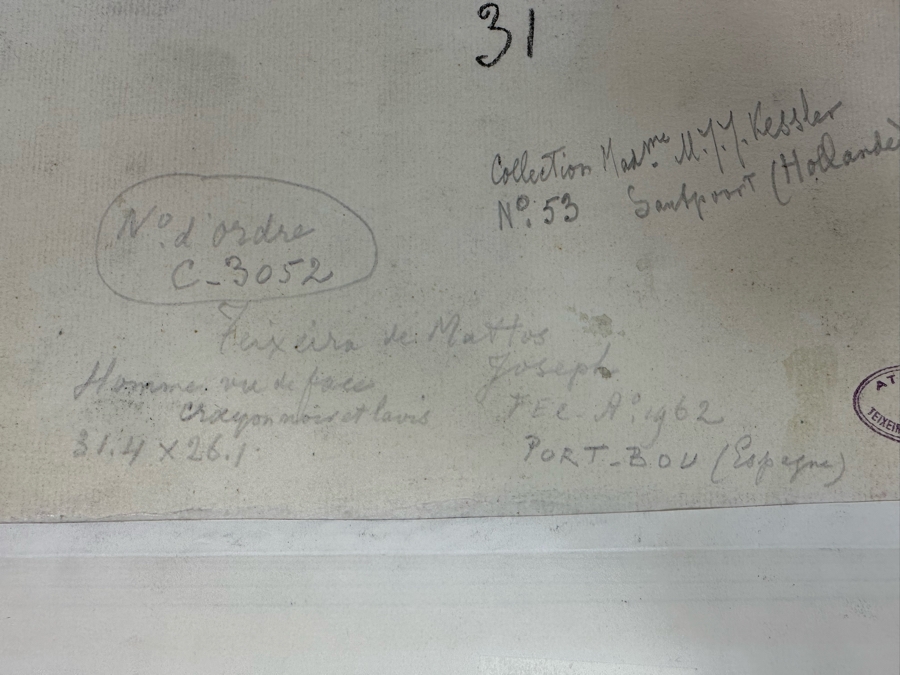 31
Collection Madme. M.J.J. Kessler
No. 53 Santpoort (Hollande)
No. d'ordre
C-3052
Teixeira de Mattos
Joseph
Homme vu de face
crayon noir et lavis
31.4 x 26.1
FEC. Ao. 1962
PORT-BOU (Espagne)
AT
TEIXEIR